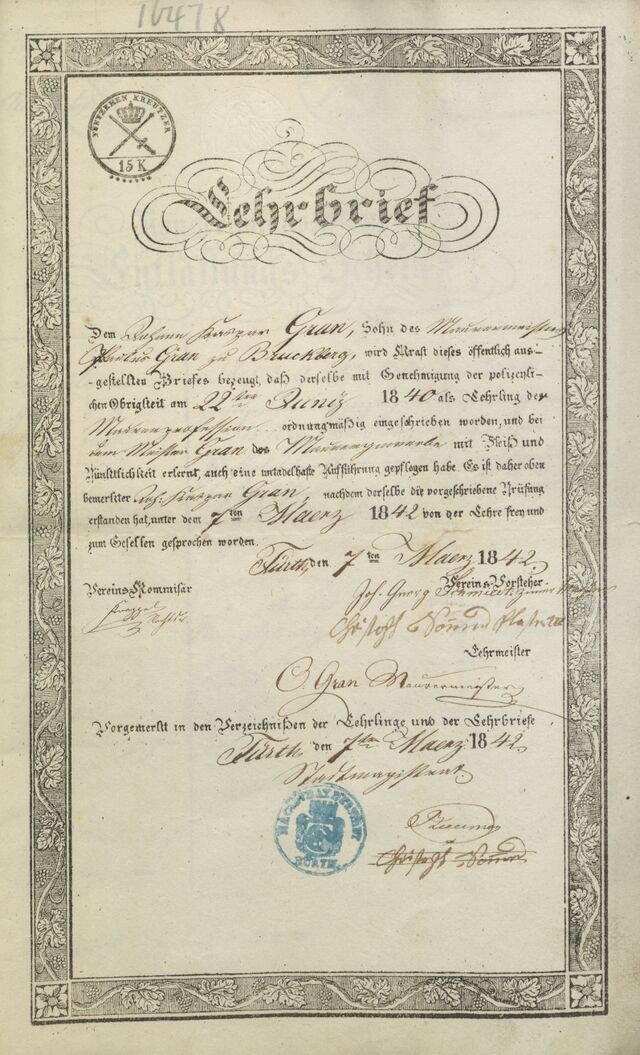 16478
FUNFZEHEN KREUTZER
15 K
Lehrbrief
Dem Johann Kaspar Gran, Sohn des Maurermeisters
Gran zu Bruckberg, wird Kraft dieses öffentlich aus-
-gestellten Briefes bezeugt, daß derselbe mit Genehmigung der polizeyli-
chen Obrigkeit am 22ten Juny 1840 als Lehrling der
Maurerprofession ordnungmäßig eingeschrieben worden, und bei
dem Meister Gran das Maurergewerbe mit Fleiß und
Pünktlichkeit erlernt, auch eine untadelhafte Aufführung gepflogen habe. Es ist daher oben
bemerkter Joh. Kaspar Gran, nachdem derselbe die vorgeschriebene Prüfung
erstanden hat, unter dem 7ten Maerz 1842 von der Lehre frey und
zum Gesellen gesprochen worden.
Fürth, den 7ten Maerz 1842.
Vereins Kommisär
Vereins Vorsteher
Joh. Georg Schmidt
Christoph
Lehrmeister
Gran Maurermeister
Vorgemerkt in den Verzeichnißen der Lehrlinge und der Lehrbriefe
Fürth, den 7ten Maerz 1842.
Stadtmagistrat
FÜRTH
Christoph